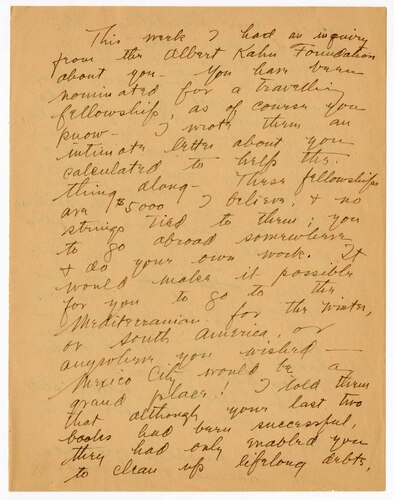 This week I had an inquiry
from the Albert Kahn Foundation
about you. You have been
nominated for a travelling
fellowship, as of course you
know. I wrote them an
intimate letter about you
calculated to help the
thing along. These fellowships
are $5000 I believe, & no
strings tied to them; you
to go abroad somewhere
& do your own work. It
would make it possible
for you to go to the
Mediterranian for the winter,
or South America, or
anywhere you wished —
Mexico City would be a
grand place! I told them
that although your last two
books had been successful,
they had only enabled you
to clean up lifelong debts,